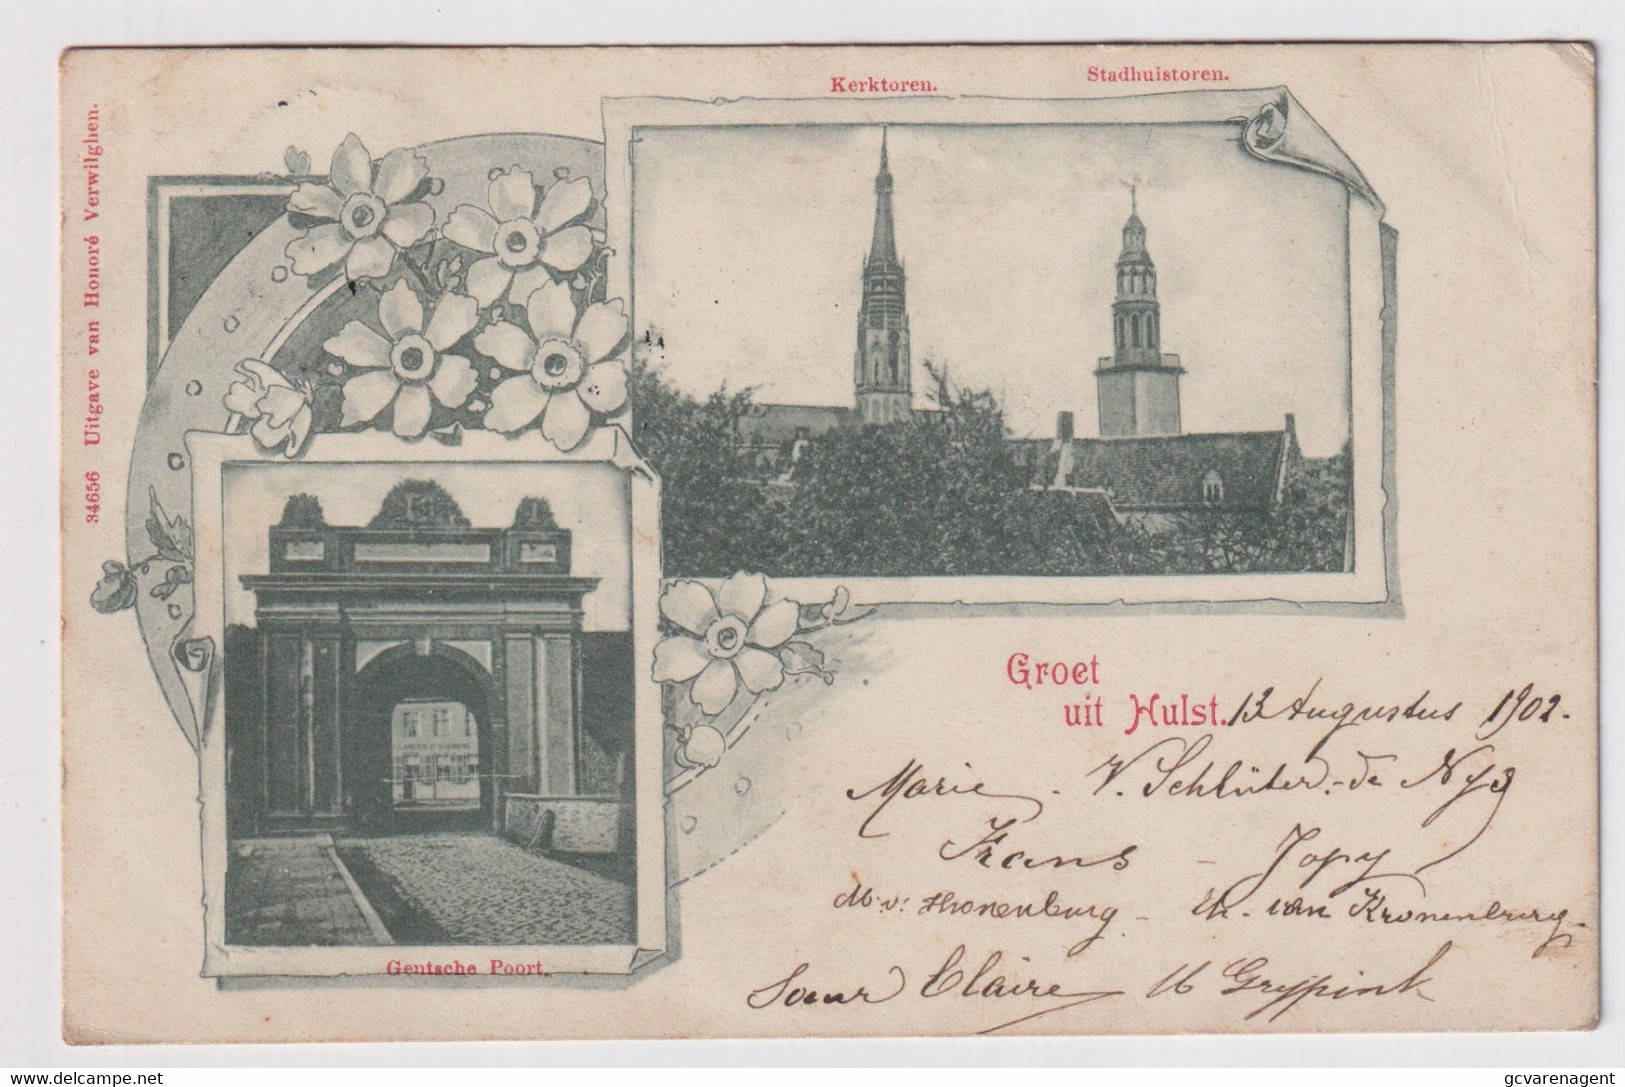 Kerktoren.
Stadhuistoren.
34656 Uitgave van Honoré Verwilghen.
Gentsche Poort.
Groet
uit Hulst. 13 Augustus 1902.
Marie - V. Schlüter-de Nijs
Frans - Jopy
M. v. Kronenburg - Th. van Kronenburg.
Soeur Claire M Grijpink
delcampe.net
gcvarenagent